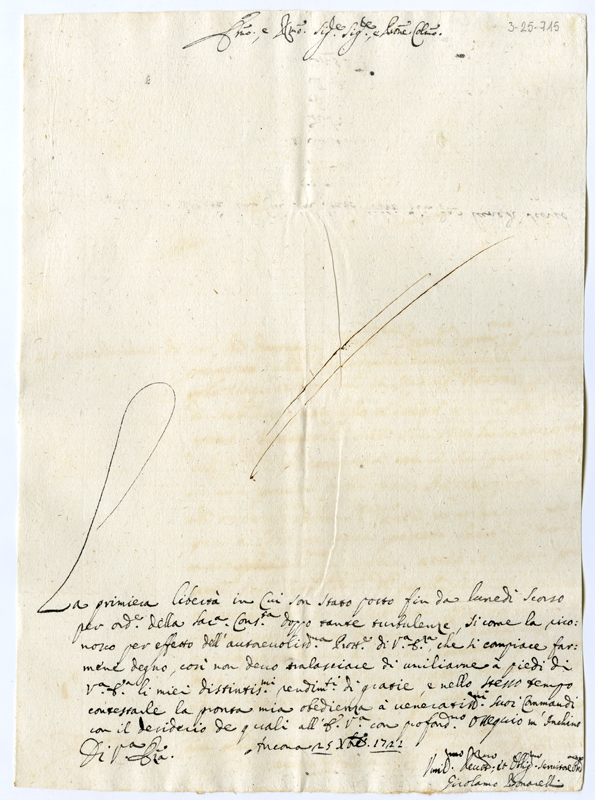 3-25-715
Emo., e Rmo. Sigre. Sigre., e Prone. Colmo.
La primiera libertà in cui son stato posto fin da lunedi scorso
per ord.e della Sac.a Cons.ta doppo tante turbulenze, si come la rico:
nosco per effetto dell' autorevoliss.ma Prott.e di V.a Em.za, che si compiace far:
mene degno, così non devo tralasciare di umiliarne à piedi di
V.a Em.za li miei distintis.mi rendim.ti di gratie, e nello stesso tempo
contestarle la pronta mia obedienza à veneratis.mi suoi Commandi
con il desiderio de quali all' Em.za V.a con profond.mo ossequio m' Inchino
Di V.a Em.za.
Ancona 25 Xbre. 1722
Umil.mo Devot.mo et Oblig.mo Servitore
Girolamo Bonarelli